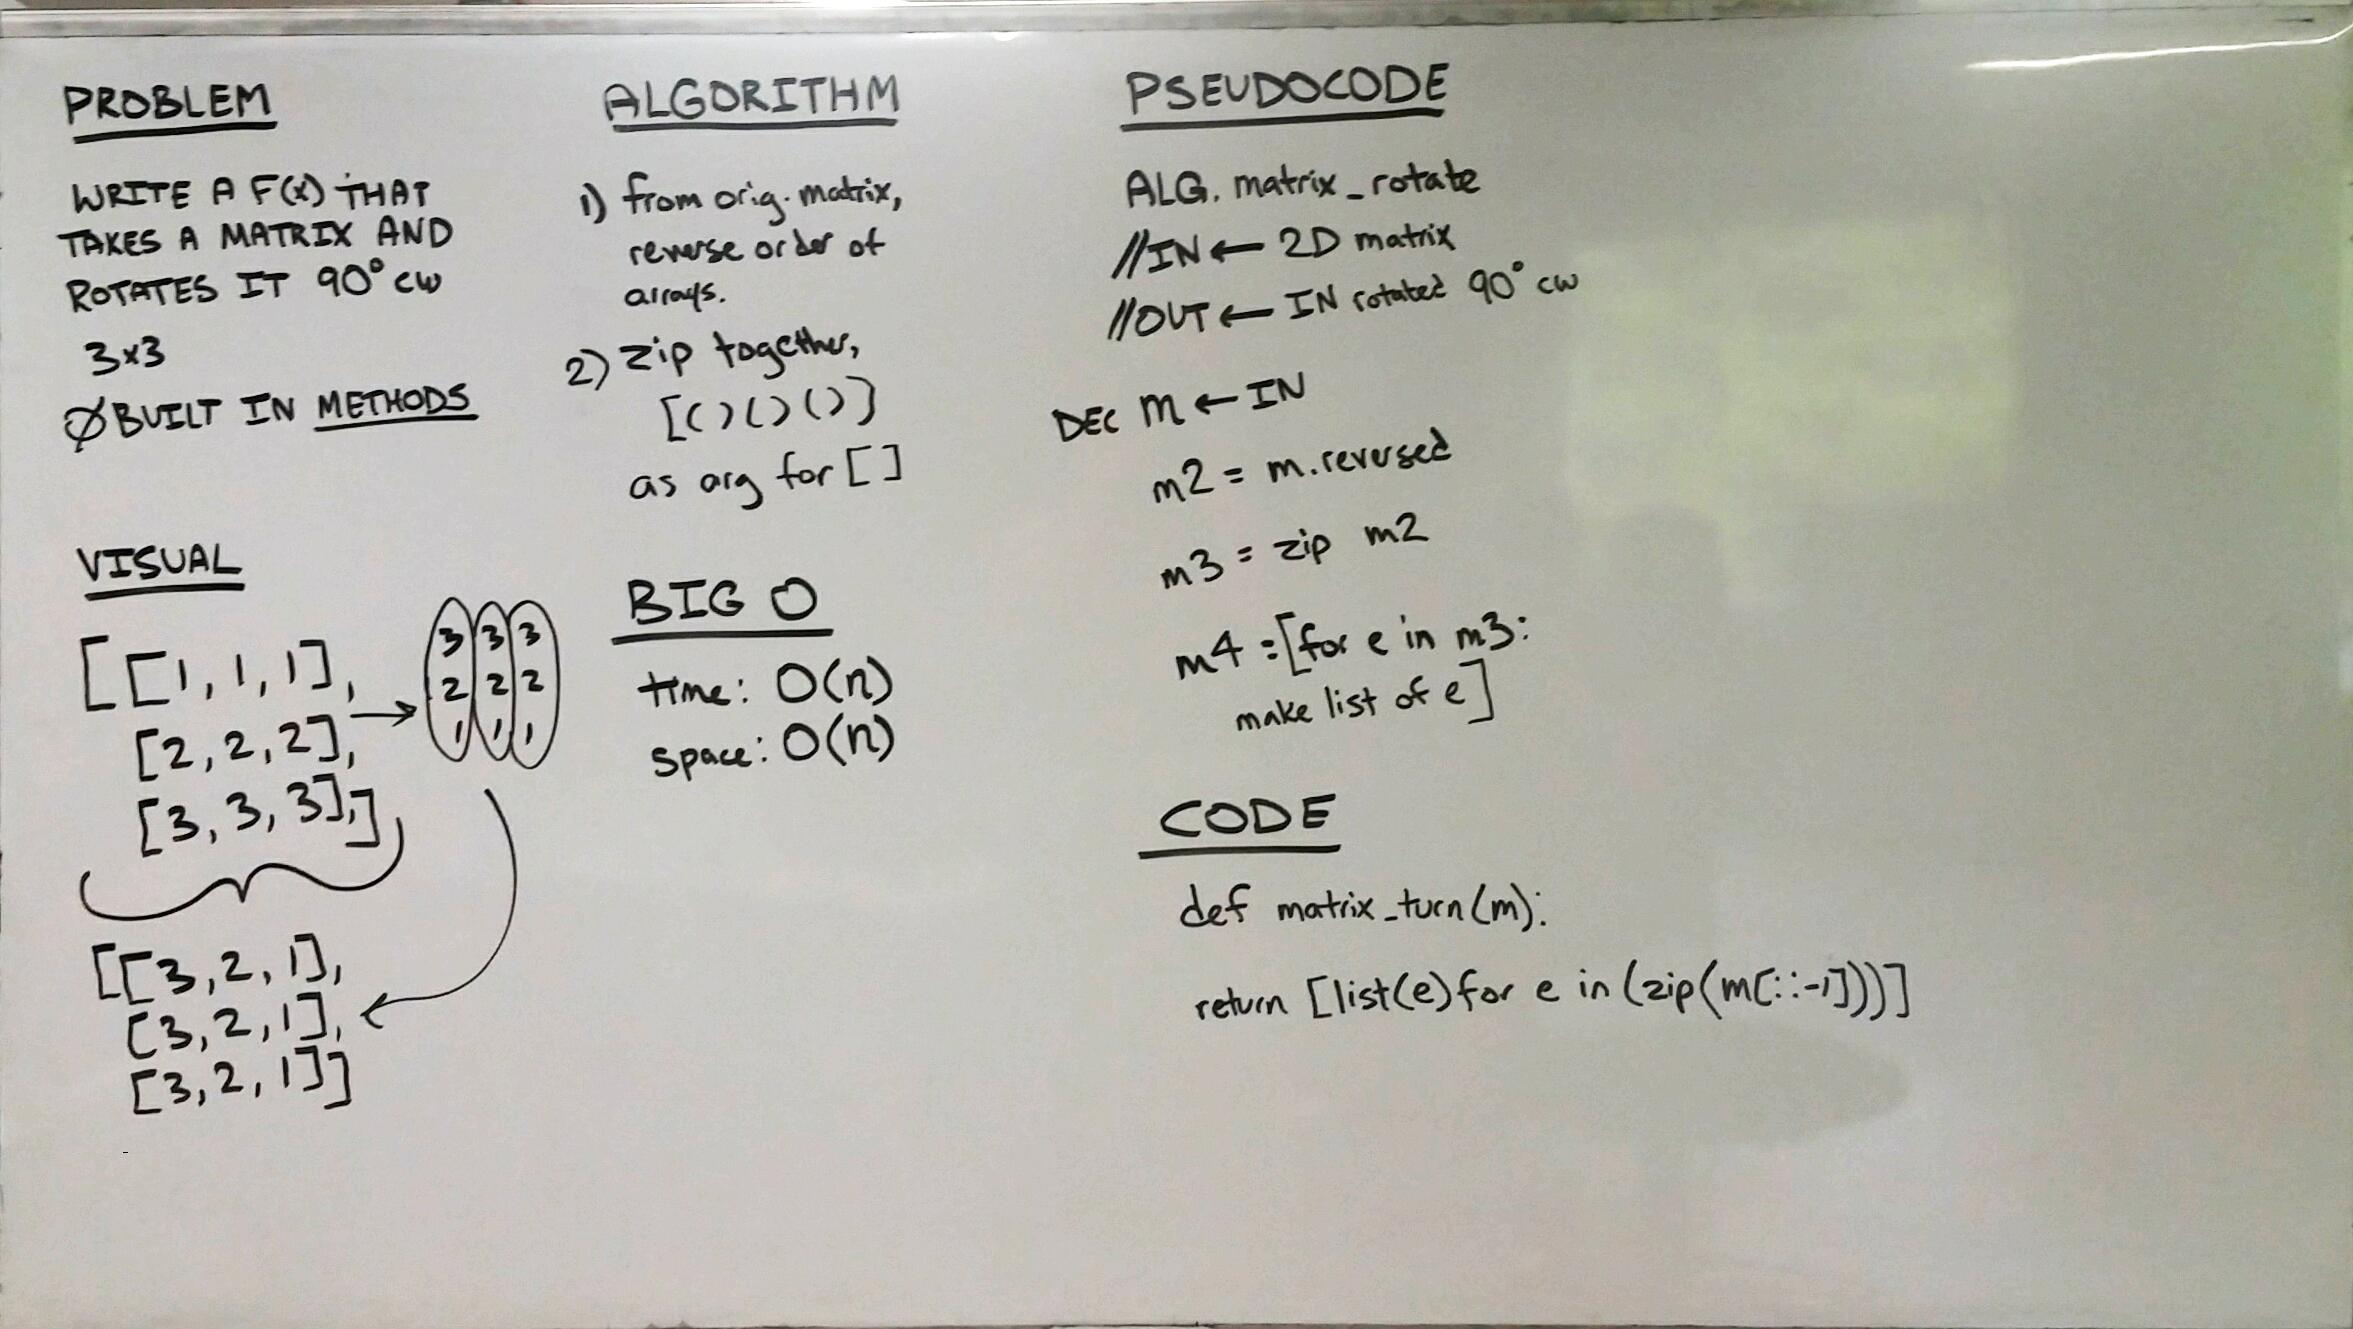 PROBLEM
WRITE A F(x) THAT
TAKES A MATRIX AND
ROTATES IT 90° CW
3x3
∅ BUILT IN METHODS
VISUAL
[[1, 1, 1],
[2, 2, 2],
[3, 3, 3],]
→
3 3 3
2 2 2
1 1 1
[[3, 2, 1],
[3, 2, 1],
[3, 2, 1]]
ALGORITHM
1) from orig. matrix,
reverse order of
arrays.
2) zip together,
[()()()]
as arg for []
BIG O
time: O(n)
space: O(n)
PSEUDOCODE
ALG. matrix_rotate
//IN ← 2D matrix
//OUT ← IN rotated 90° cw
DEC m ← IN
m2 = m.reversed
m3 = zip m2
m4 = [for e in m3:
make list of e]
CODE
def matrix_turn(m):
return [list(e) for e in (zip(m[::-1]))]